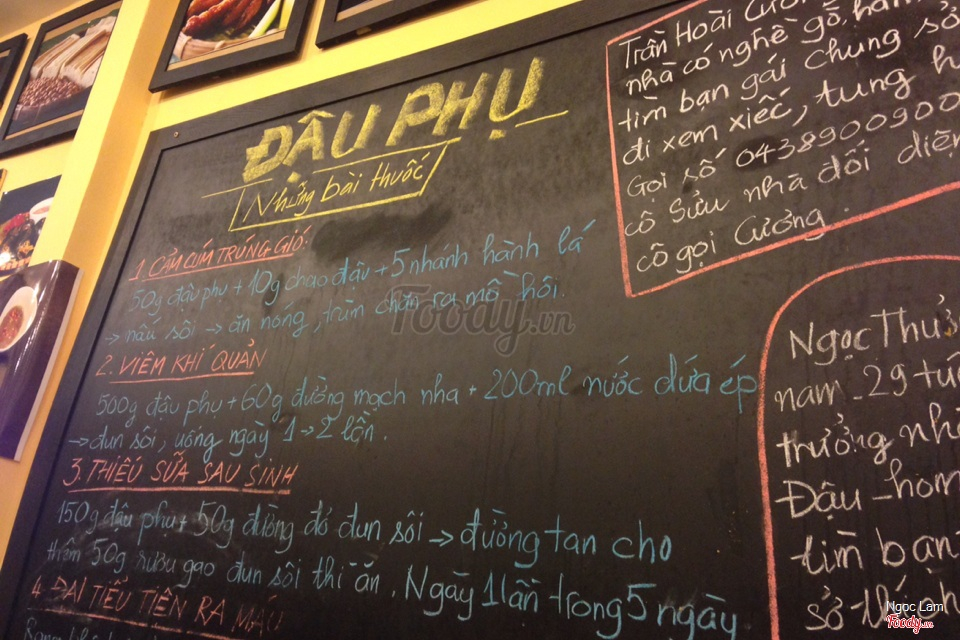 ĐẬU PHỤ
Những bài thuốc
1. CẢM CÚM TRÚNG GIÓ:
50g đậu phụ + 10g chao đậu + 5 nhánh hành lá
→ nấu sôi → ăn nóng, trùm chăn ra mồ hôi.
2. VIÊM KHÍ QUẢN
500g đậu phụ + 60g đường mạch nha + 200ml nước dứa ép
→ đun sôi, uống ngày 1→2 lần.
3. THIẾU SỮA SAU SINH
150g đậu phụ + 50g đường đỏ đun sôi → đường tan cho
thêm 50g rượu gạo đun sôi thì ăn. Ngày 1 lần trong 5 ngày
4. ĐẠI TIỂU TIỆN RA MÁU
Trần Hoài Cươ
nhà có nghề gỗ, ham
tìm bạn gái chung sở
đi xem xiếc, tung h
Gọi số 043890090
cô Sửu nhà đối diện
cô gọi Cương.
Ngọc Thuỷ
nam. 29 tuổ
trưởng nh
Đậu - hom
tìm bạn
sở thích
Foody.vn
Ngọc Lam
Foody.vn